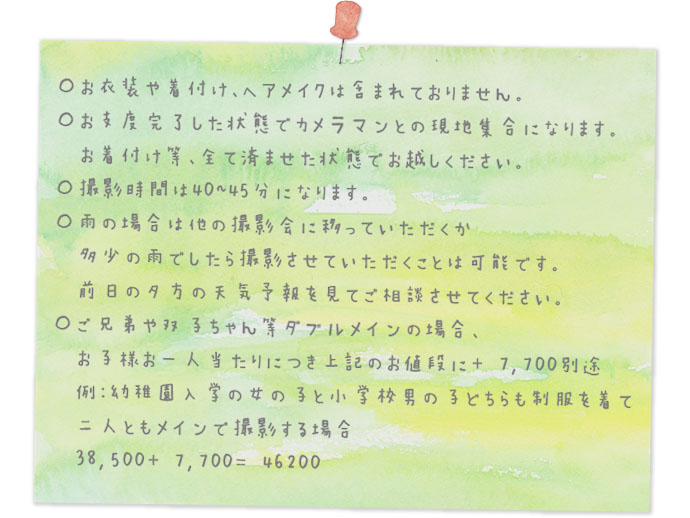 ○お衣装や着付け、ヘアメイクは含まれておりません。
○お支度完了した状態でカメラマンとの現地集合になります。
お着付け等、全て済ませた状態でお越しください。
○撮影時間は40~45分になります。
○雨の場合は他の撮影会に移っていただくか
多少の雨でしたら撮影させていただくことは可能です。
前日の夕方の天気予報を見てご相談させてください。
○ご兄弟や双子ちゃん等ダブルメインの場合、
お子様お一人当たりにつき上記のお値段に+ 7,700別途
例:幼稚園入学の女の子と小学校男の子どちらも制服を着て
二人ともメインで撮影する場合
38,500+ 7,700= 46200